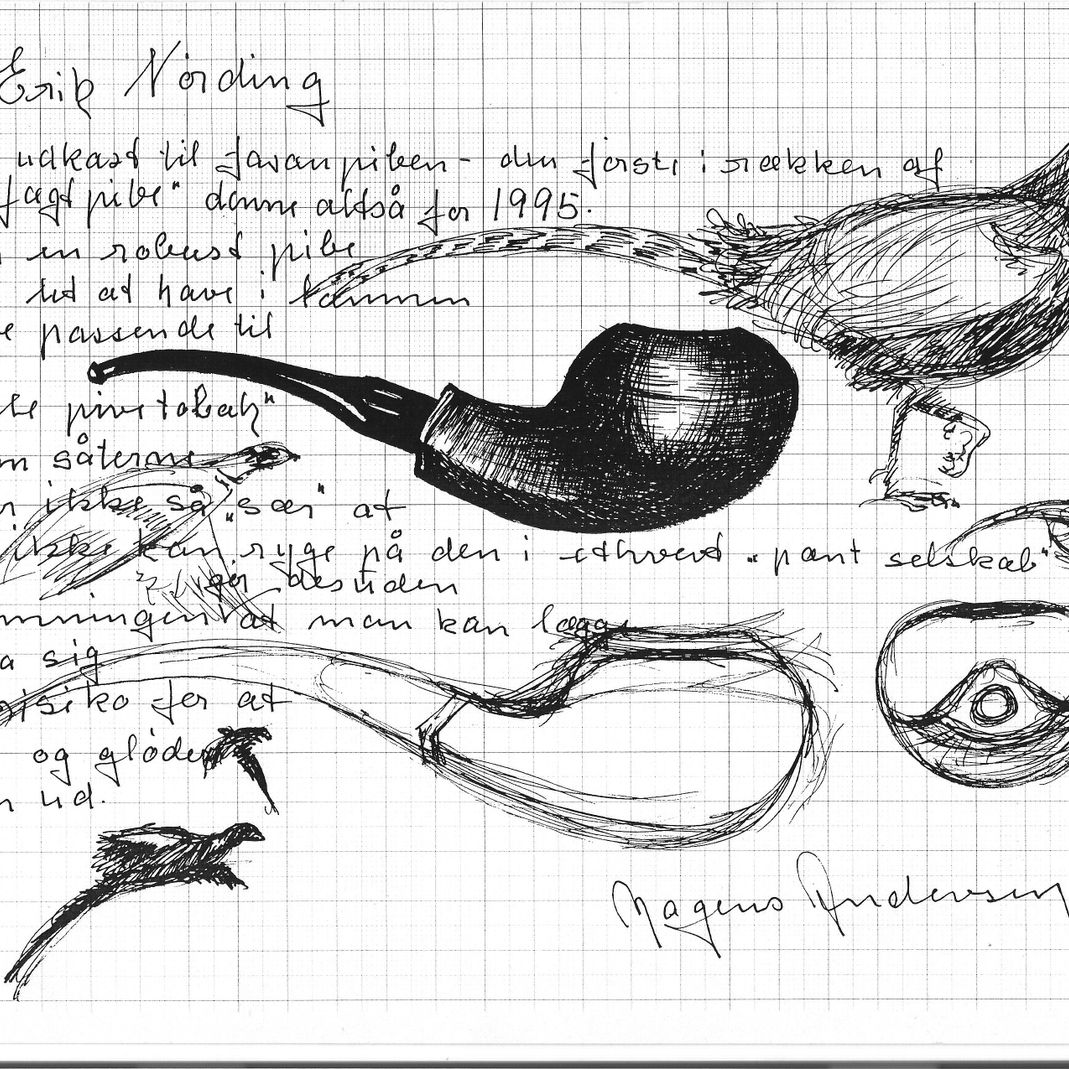 Erik Nørding
udkast til fasanpiben - den første i rækken af
Jagtpibe" denne altså for 1995.
en robust pibe
let at have i tanden
passende til
pivetobak"
såterne
ikke så "sær" at
ikke kan ryge på den i ethvert "pænt selskab"
gør desuden
at man kan lægge
sig
risiko for at
og gløder
ud.
Mogens Andersen